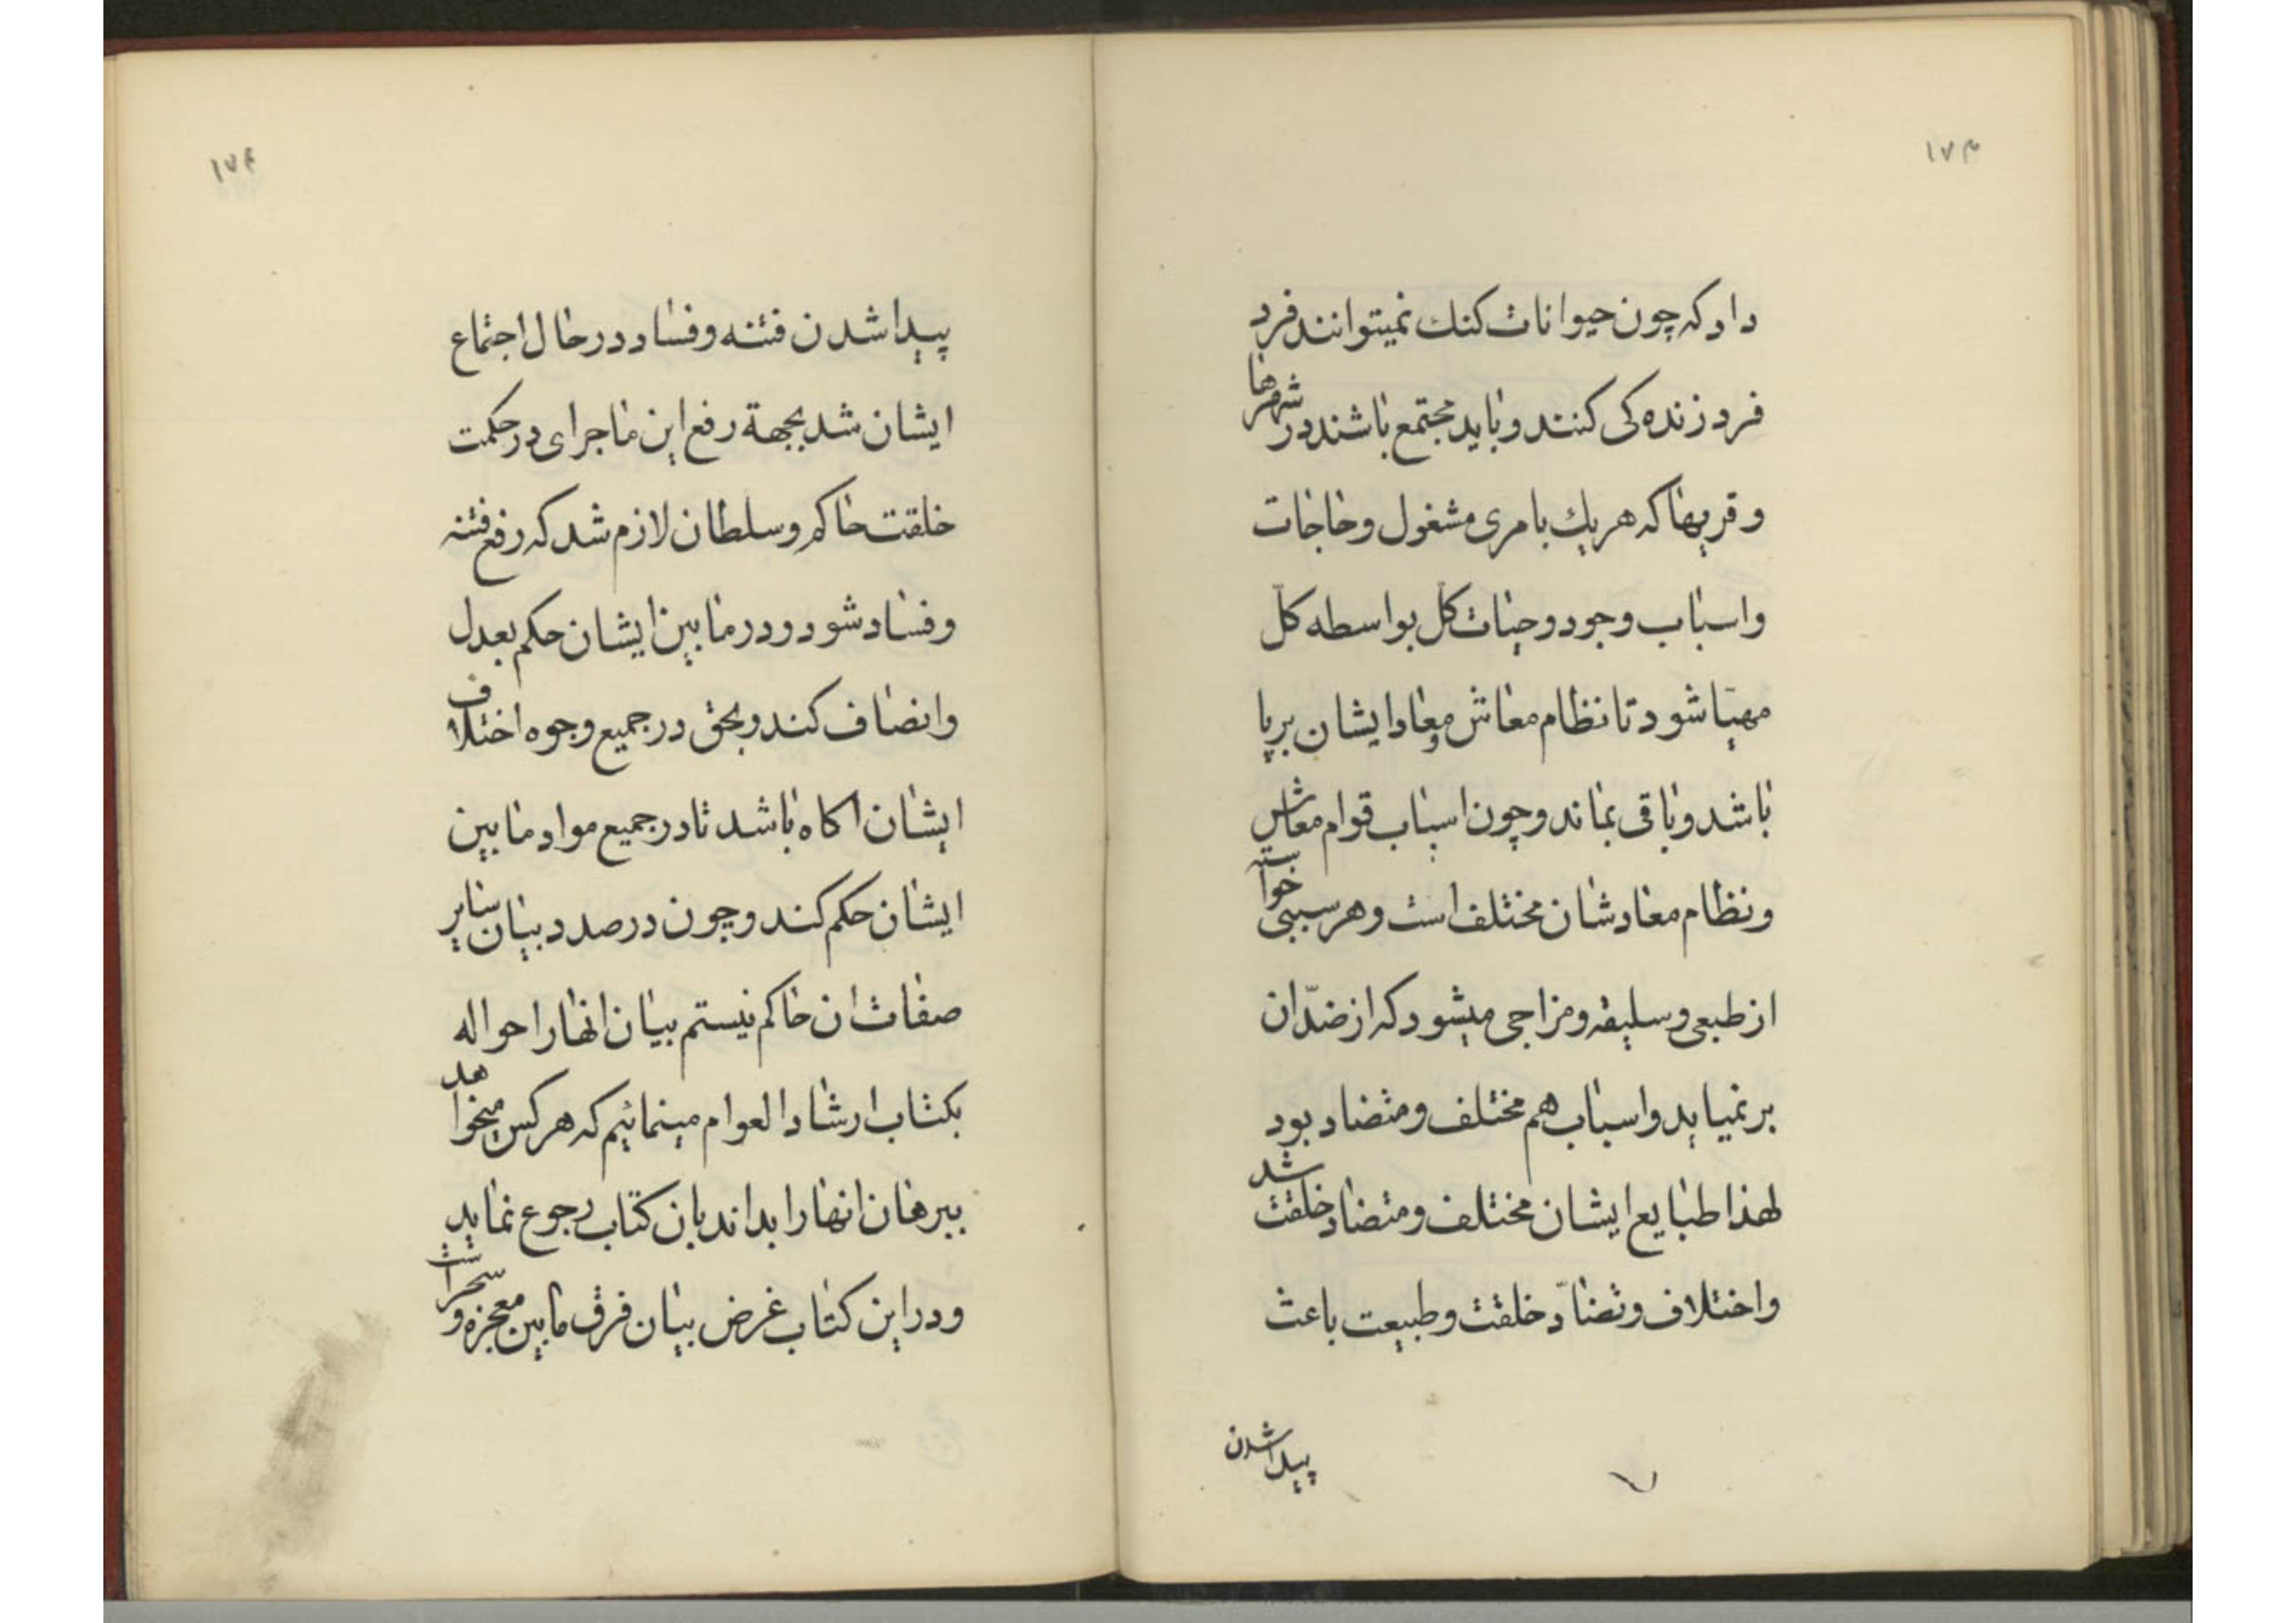 ۱۷۳
داد که چون حیوانات کنك نمیتوانند فرد
فرد زنده کی کنند و باید مجتمع باشند در شهرها
و قریها که هریك بامری مشغول و حاجات
و اسباب وجود و حیات کل بواسطه کلّ
مهیّا شود تا نظام معاش و معاد ایشان برپا
باشد و باقی بماند و چون اسباب قوام معاش
و نظام معادشان مختلف است و هر سببی خواسته
از طبعی و سلیقه و مزاجی میشود که از ضدّ ان
برنمیاید و اسباب هم مختلف و متضاد بود
لهذا طبایع ایشان مختلف و متضاد خلقت شد
و اختلاف و تضادّ خلقت و طبیعت باعث
پیدا شدن
۱۷۴
پیدا شدن فتنه و فساد در حال اجتماع
ایشان شد بجهة رفع این ماجرای در حکمت
خلقت حاکم و سلطان لازم شد که رفع فتنه
و فساد شود و در مابین ایشان حکم بعدل
و انصاف کند و بحق در جمیع وجوه اختلاف
ایشان اکاه باشد تا در جمیع مواد مابین
ایشان حکم کند و چون در صدد بیان سایر
صفات ان حاکم نیستم بیان انها را حواله
بکتاب ارشاد العوام مینمائیم که هر کس میخواهد
ببرهان انها را بداند بان کتاب رجوع نماید
و در این کتاب غرض بیان فرق مابین معجزه و سحر است